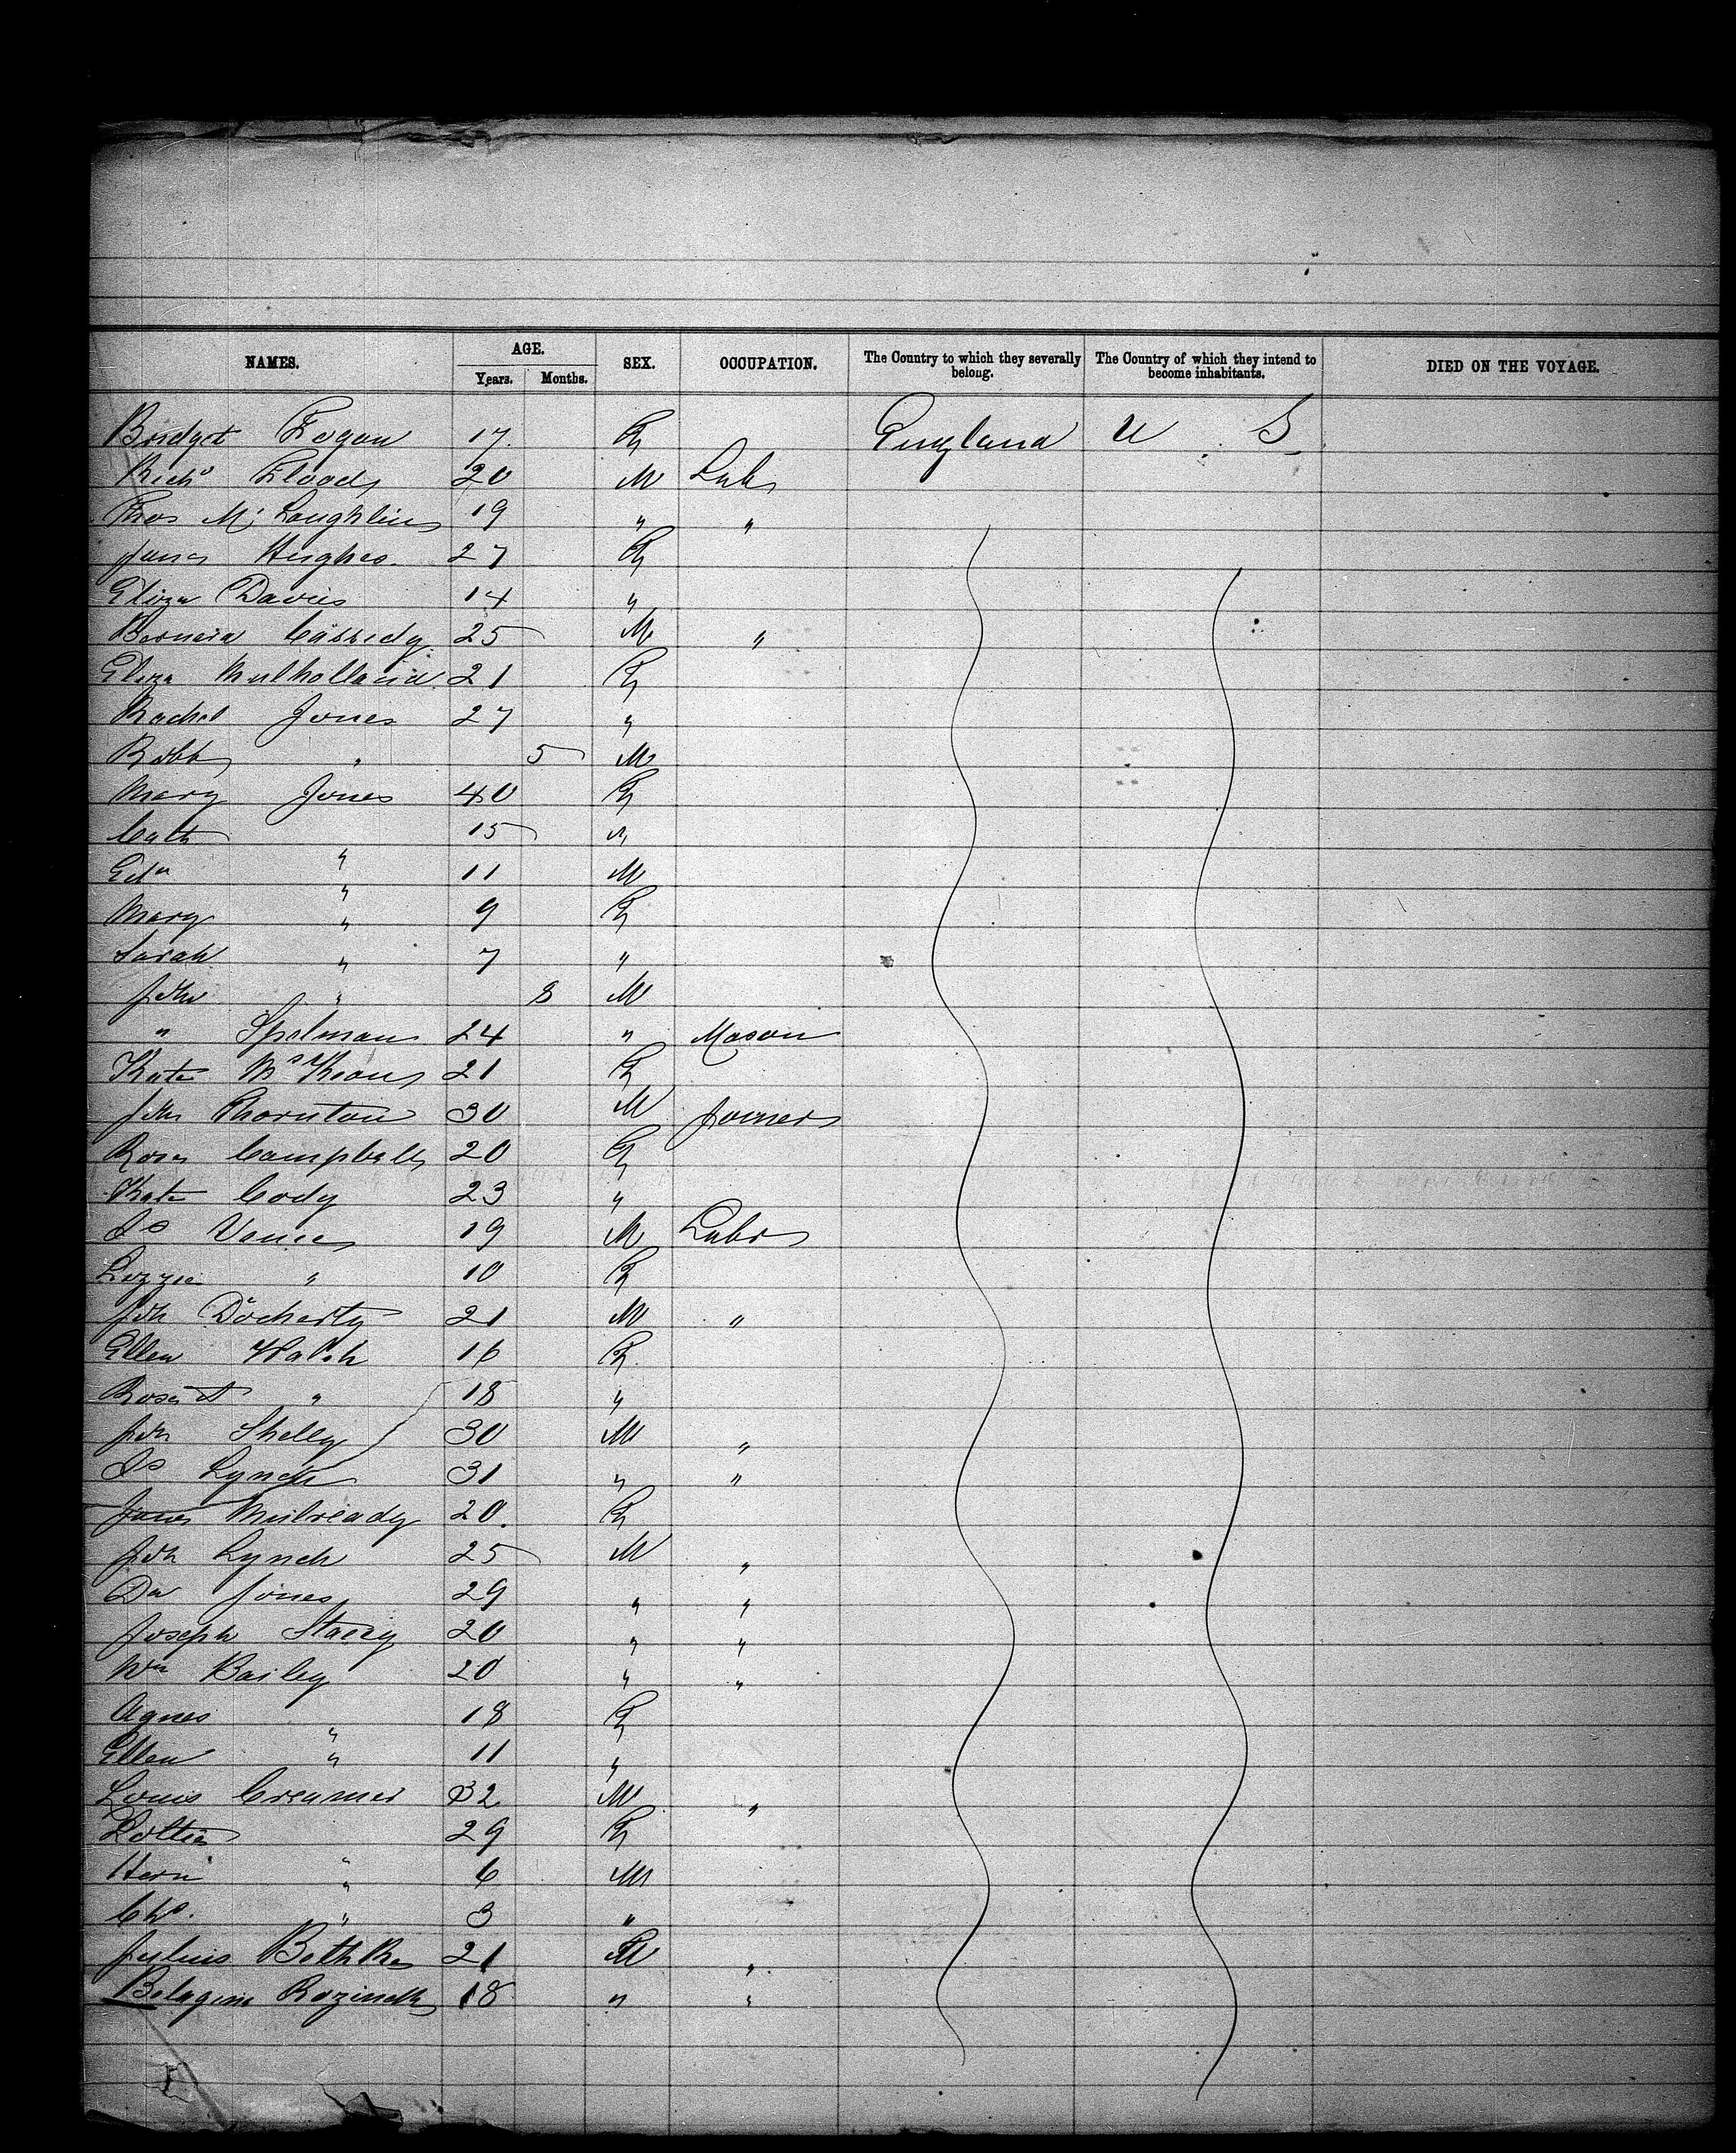 NAMES. AGE. SEX. OCCUPATION. The Country to which they severally belong. The Country of which they intend to become inhabitants. DIED ON THE VOYAGE.
Years. Months.
Bridget Fogan 17 F England U S
Richd Flood 20 M Lab
Thos Mc Laughlin 19 " "
Jane Hughes. 27 F
Eliza Davies 14 "
Bernard Cassidy 25 M "
Eliza Mulholland 21 F
Rachel Jones 27 "
Robt " 5 M
Mary Jones 40 F
Cath " 15 "
Edw " 11 M
Mary " 9 F
Sarah " 7 "
John " 8 M
" Spelman 24 " Mason
Kate McKeon 21 F
John Thornton 30 M Joiner
Rose Campbell 20 F
Kate Cody 23 "
Js Vance 19 M Labr
Lizzie " 10 F
Joh Docherty 21 M "
Ellen Walsh 16 F
Rose A " 18 "
Joh Shelly 30 M "
Js Lynch 31 " "
Jane Mulready 20. F
Joh Lynch 25 M "
Da Jones 29 " "
Joseph Stacey 20 " "
Wm Bailey 20 " "
Agnes " 18 F
Ellen " 11 "
Louis Creamer 32 M "
Lottie " 29 F
Hern " 6 M
Chs. " 3 "
Julius Bethke 21 M "
18 " "